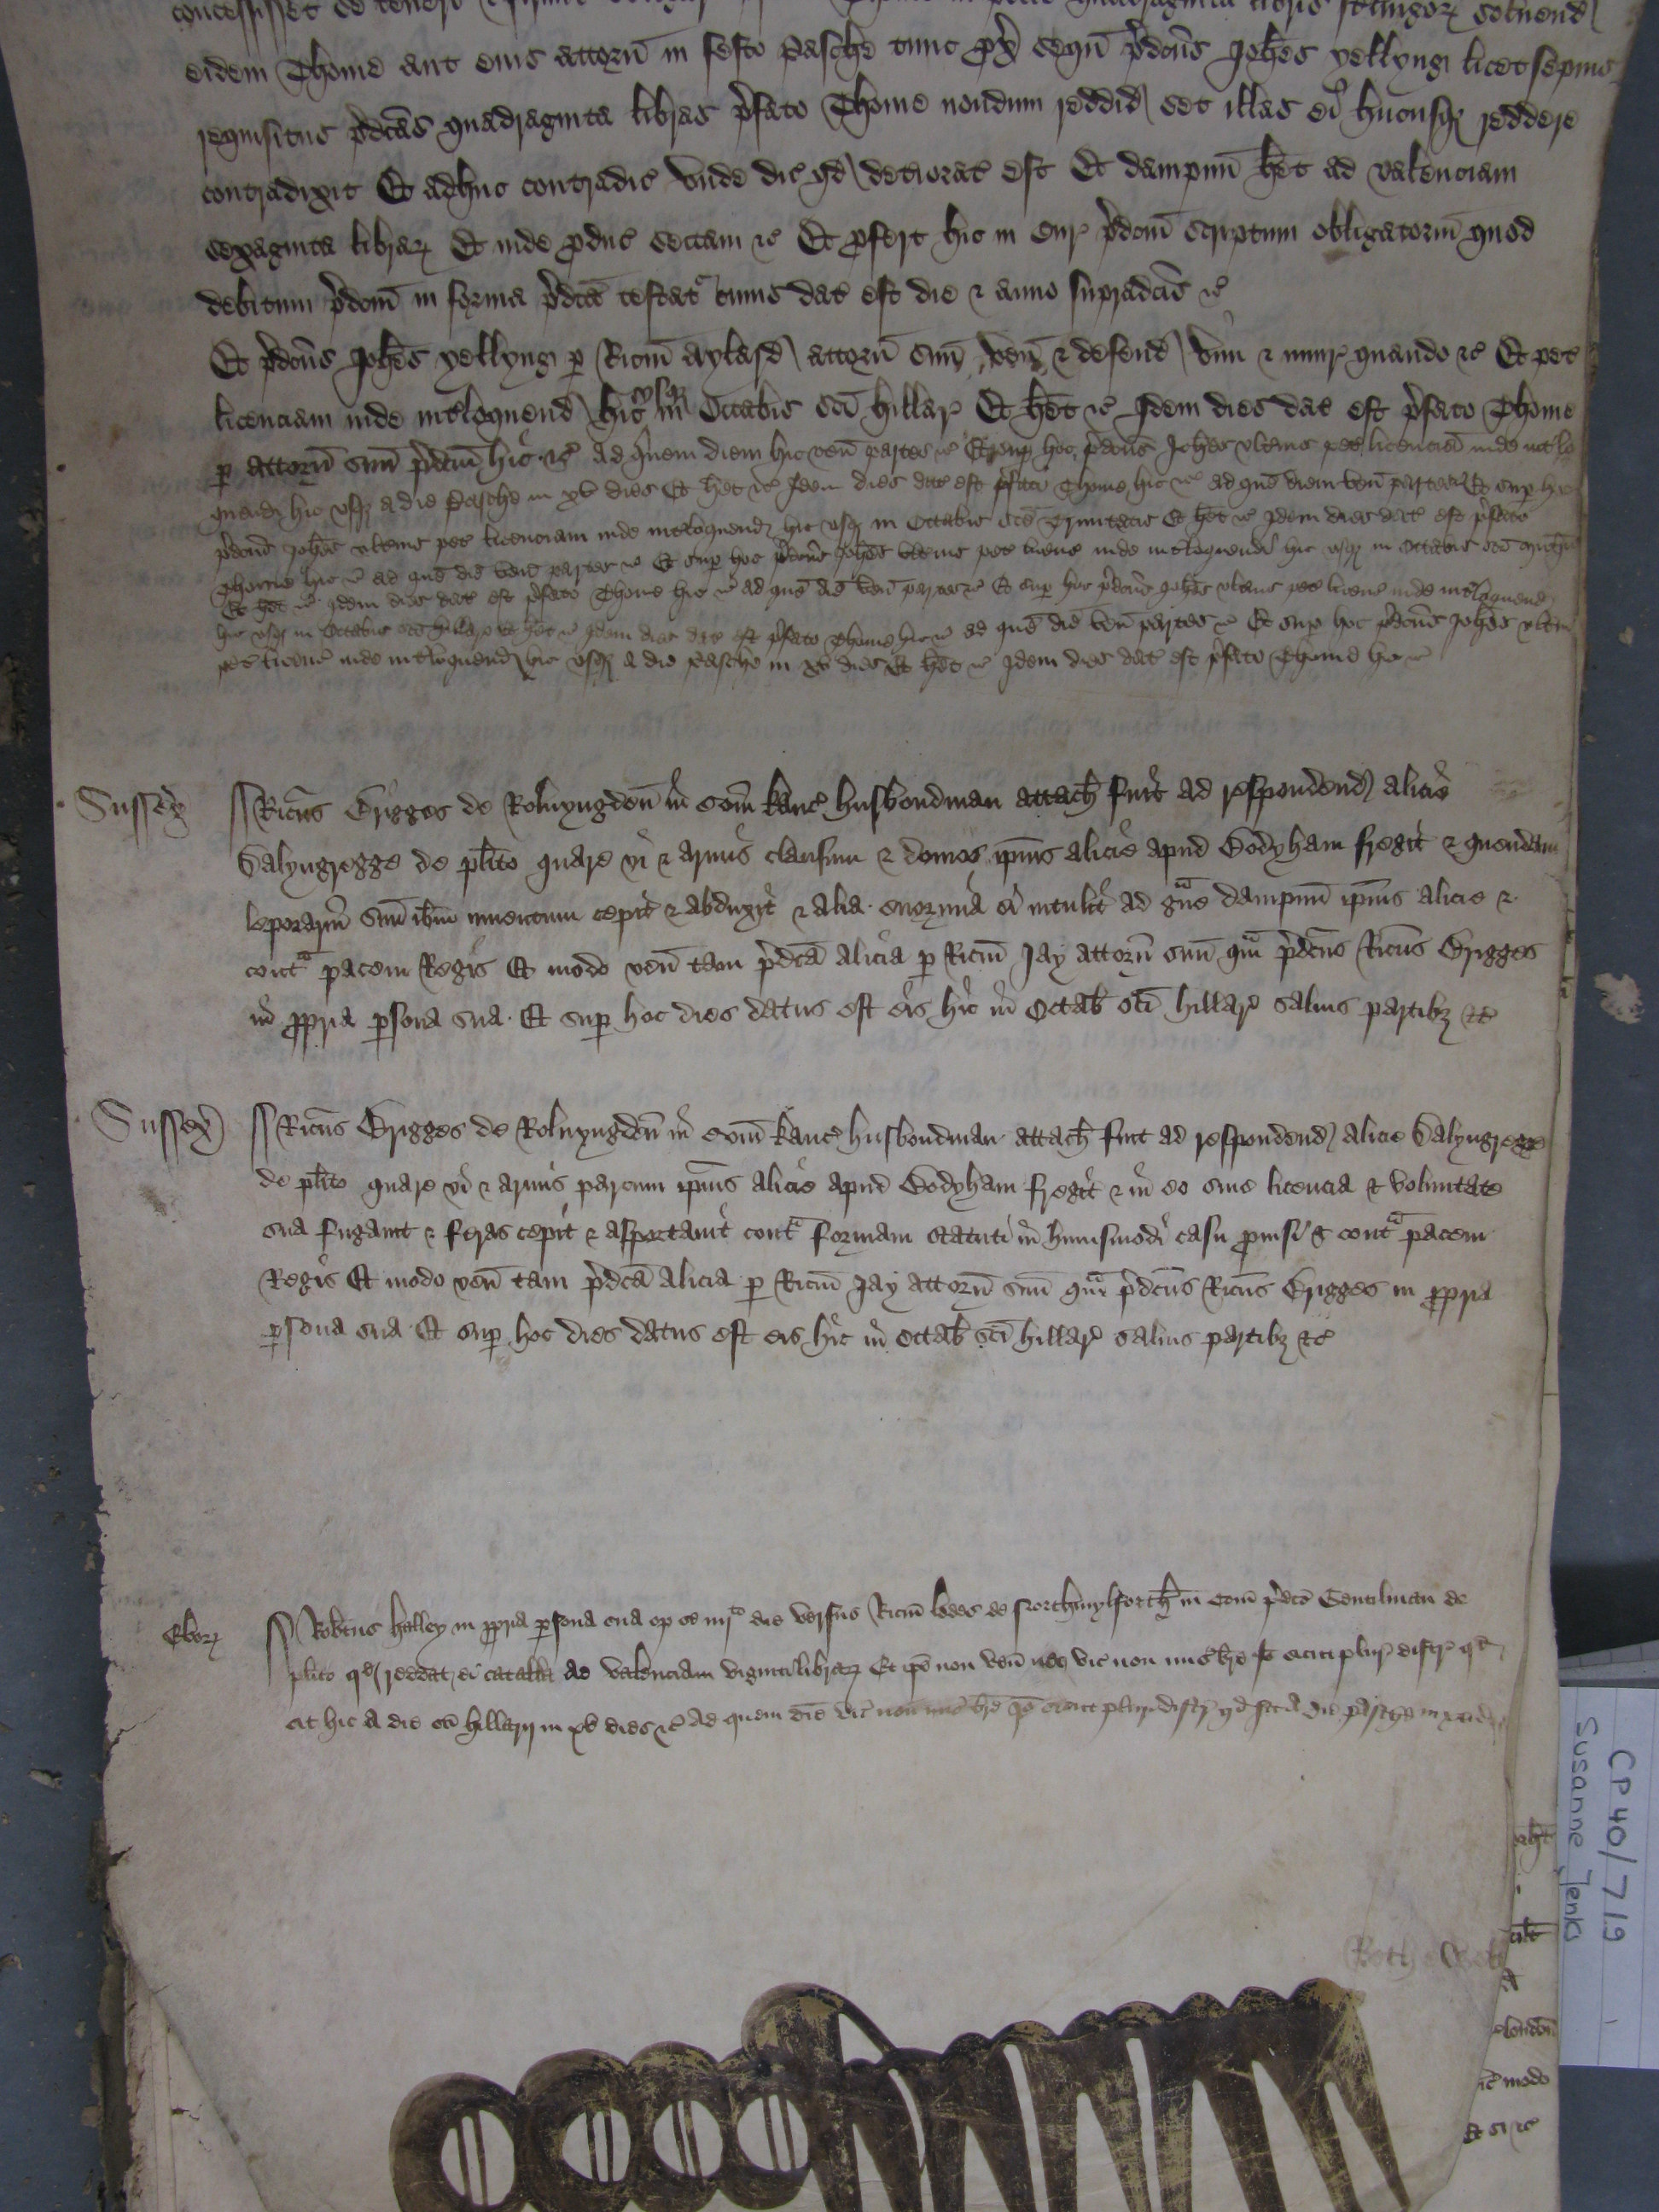 concessisset se teneri
eidem Thome aut eius attorn in festo Pasche tunc px sequ p̄dcus Johes yellyng licet sepius
requisitus p̄dcas quadraginta libras p̄fato Thome nondum reddid set illas ei hucusq reddere
contradixit Et adhuc contradic vnde dic qd detiorat est Et dampnu het ad valenciam
sexaginta librar Et inde produc sectam &c Et profert hic in Cur p̄dcm scriptum obligatoriu quod
debitum p̄dcm in forma p̄dca testat cuius dat est die & anno supradcis &c
Et p̄dcus Johes yellyng p Ricm Aylard attorn suu ven & defend vim & iniur quando &c Et pet
licenciam inde intloquend hic usq in Octabis sci hillar Et het &c Idem dies dat est p̄fato Thome
p attorn suu p̄dcm hic &c Ad quem diem hic ven partes &c Et sup hoc p̄dcus Johes vlterius pet licenciam inde intlo
quend hic vsq a die Pasche in xv dies Et het &c Idem dies dat est p̄fato Thome hic &c ad que diem ven partes Et sup hoc
p̄dcus Johes vlterius pet licenciam inde intloquend hic vsq in Octabis sce Trinitatis Et het &c Idem dies dat est p̄fato
Thome hic &c ad que die ven partes &c Et sup hoc p̄dcus Johes vlterius pet licenc inde intloquend hic vsq in Octabis sci Michis
Et het &c Idem dies dat est p̄fato Thome hic &c ad que die ven partes &c Et sup hoc p̄dcus Johes vlterius pet licenc inde intloquend
hic vsq in Octabis sci hillar Et het &c Idem dies dat est p̄fato Thome hic &c ad que die ven partes &c Et sup hoc p̄dcus Johes vlterius
pet licenc inde intloquend hic vsq a die Pasche in xv dies Et het &c Idem dies dat est p̄fato Thome hic &c
Sussex Ricus Grigges de Roluyngden in Com Kanc husbondman attach fuit ad respondend Alicie
Salyngregge de plito quare vi & armis clausum & domos ipius Alicie apud Bodyham fregit & quendam
leporariu suu ibm inuentum cepit & abduxit & alia enormia ei intulit ad g̃ue dampnu ipius Alicie &
cont pacem Regis Et modo ven tam p̄dca Alicia p Ricm Jay attorn suu qm p̄dcus Ricus Grigges
in propria psona sua Et sup hoc dies datus est eis hic in Octab sci hillar saluis partibz &c
Sussex Ricus Grigges de Roluyngden in Com Kanc husbondman attach fuit ad respondend Alicie Salyngregge
de plito quare vi & armis parcum ipius Alicie apud Bodyham fregit & in eo sine licencia & voluntate
sua fugauit & feras cepit & asportauit cont formam statuti in huiusmodi casu prouisi & cont pacem
Regis Et modo ven tam p̄dca Alicia p Ricm Jay attorn suu qm p̄dcus Ricus Grigges in propria
psona sua Et sup hoc dies datus est eis hic in Octab sci hillar saluis partibz &c
Ebor Robtus halley in propria psona sua op se iiijto die versus Ricm Ledes de Northmylforth in Com p̄dco Gentilman de
plito qd reddat ei catalla ad valenciam viginti librar Et ipe non ven vic non mis bre sicut plur distr qd
sit hic a die sci hillarij in xv dies &c Ad quem die vic non mis bre sicut plur distr qd sit a die Pasche in
CP 40/719
Susanne Jenks